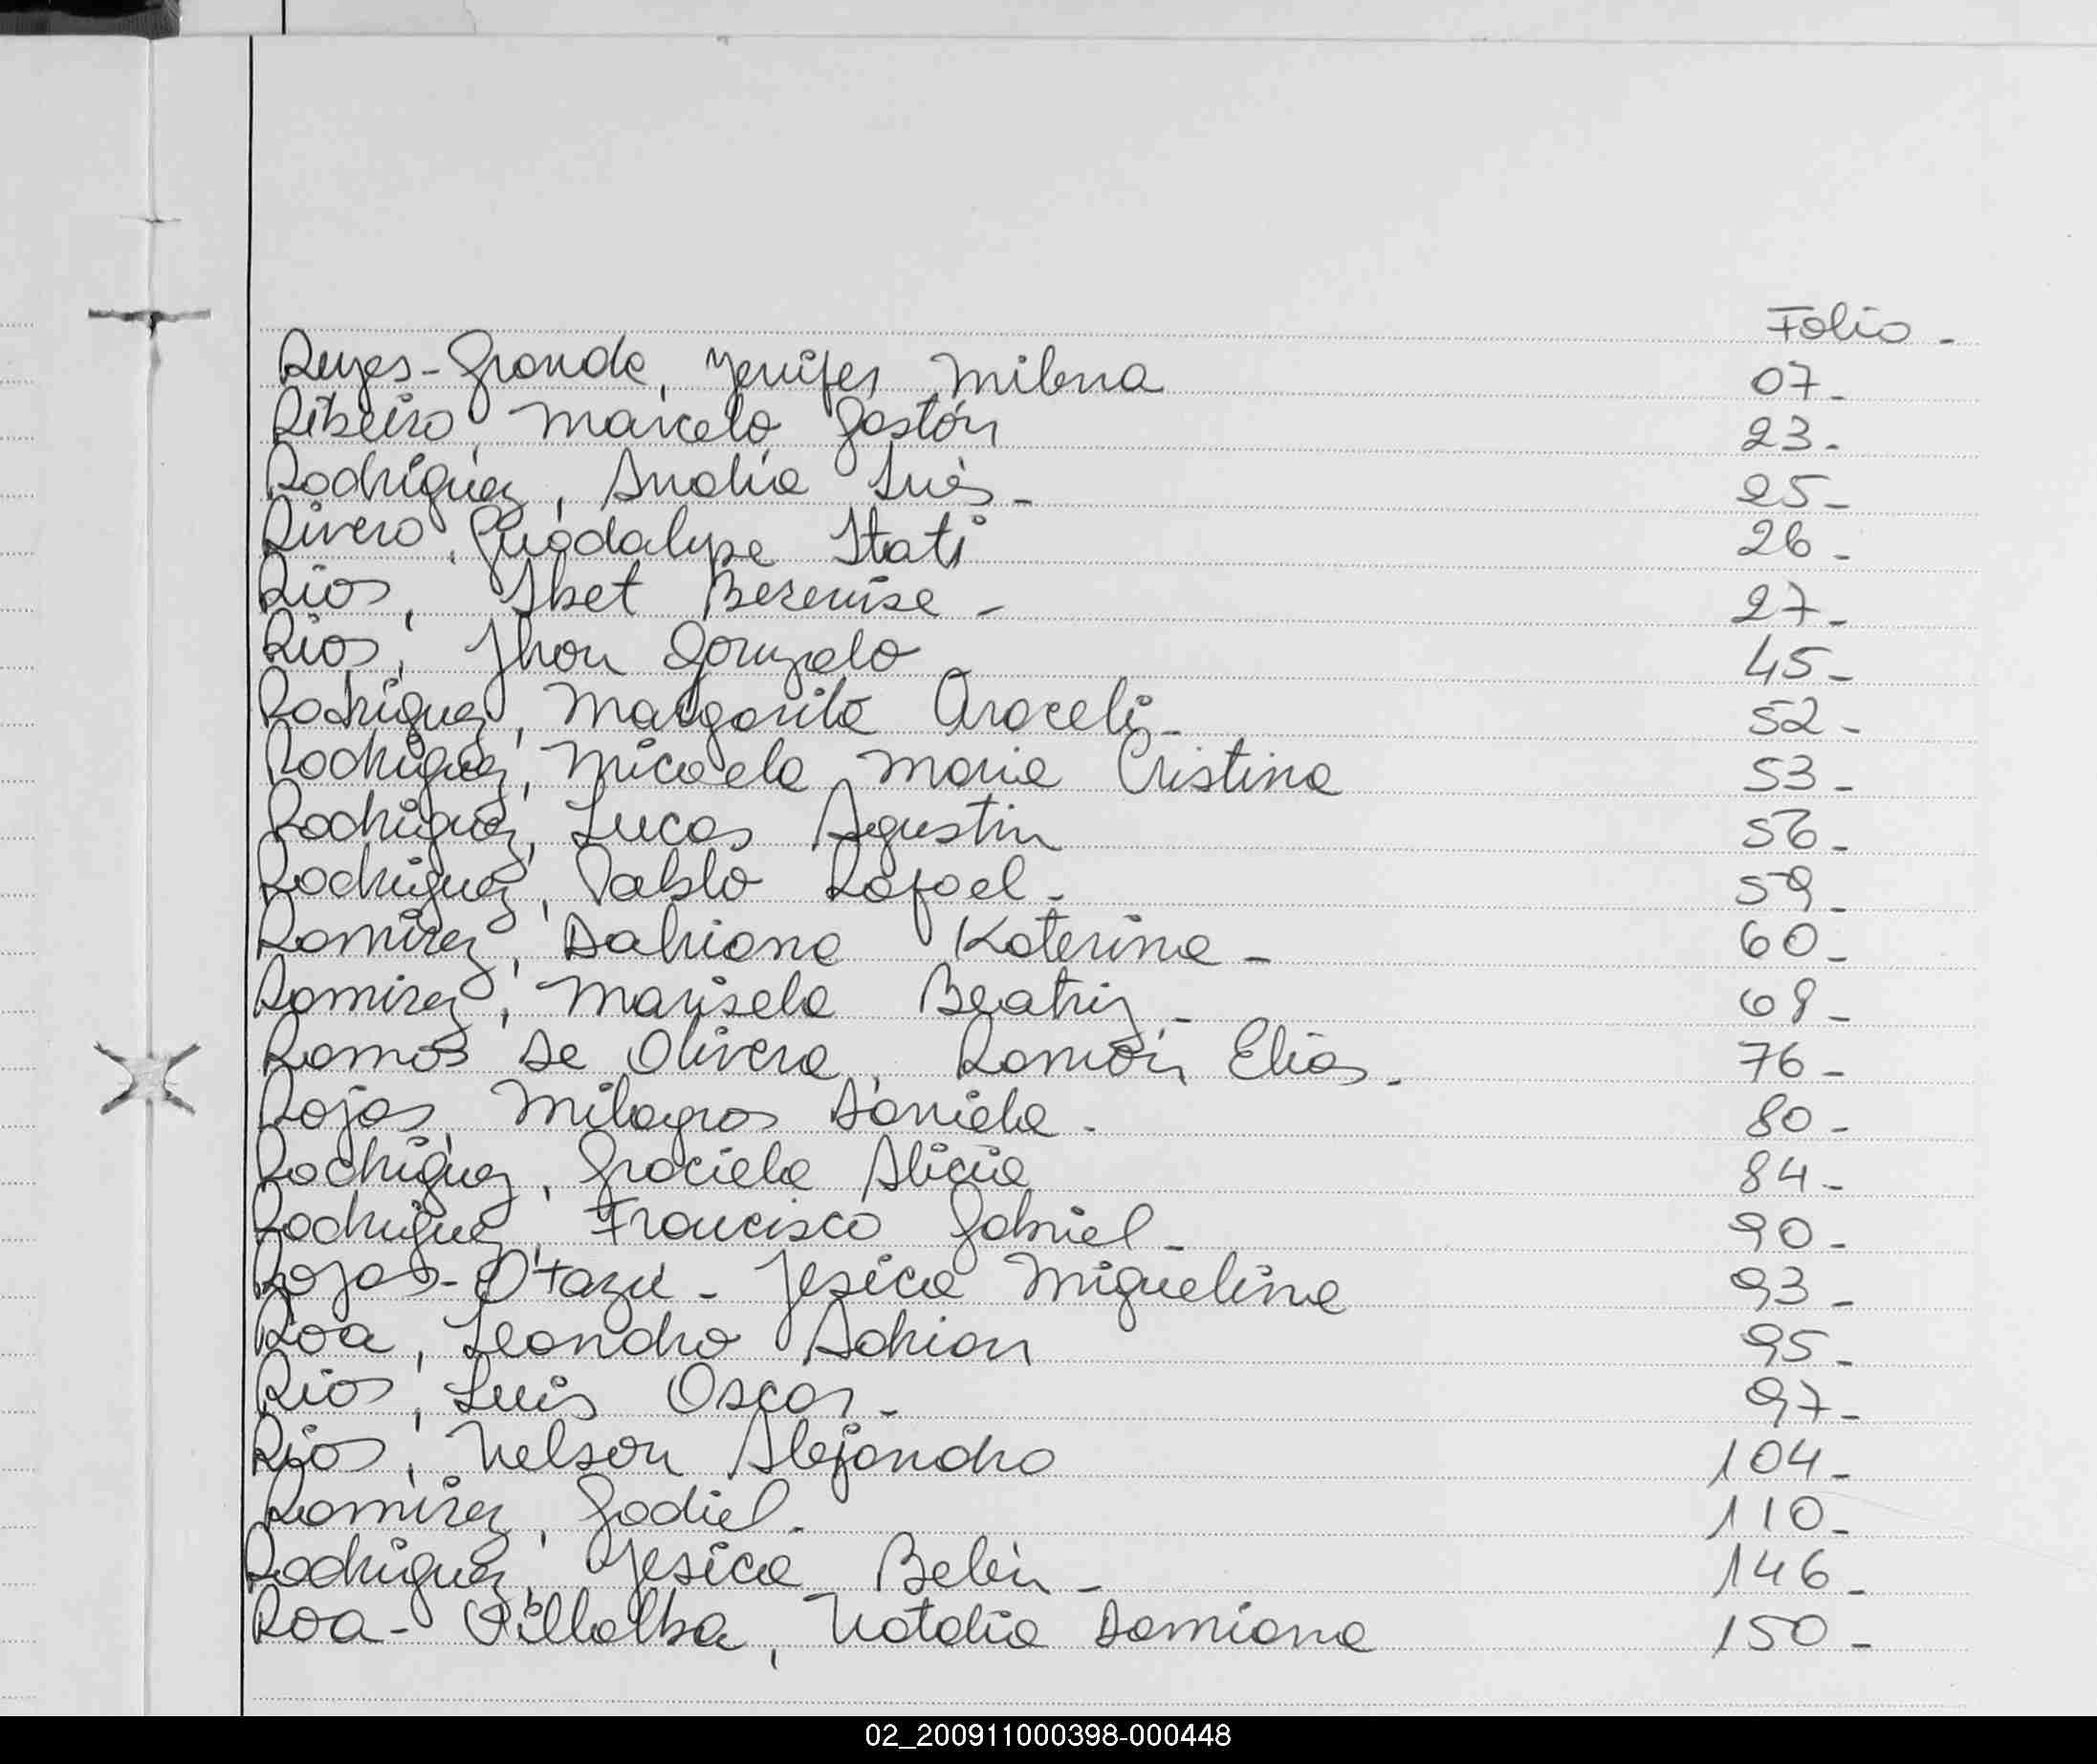 Folio -
Reyes-Grande, Yenifer Milena 07-
Ribeiro, Marcelo Gastón 23-
Rodríguez, Analía Inés- 25-
Rivero, Guadalupe Itatí 26-
Rios, Berenise - 27-
Rios, Jhon Gonzalo 45-
Rodriguez, Margarita Araceli- 52-
Rodriguez, Micaela Maria Cristina 53-
Rodriguez, Lucas Agustin 56-
Rodriguez, Pablo Rafael- 59-
Ramirez, Dahiana Katerine- 60-
Ramirez, Marisela Beatriz- 69-
Ramos De Olivera, Ramón Elias. 76-
Rojas, Milagros Daniela- 80-
Rodriguez, Graciela Alicia 84-
Rodriguez, Francisco Gabriel- 90-
Rojas-Otazú- Jesica Miguelina 93-
Roa, Leandro Adrian 95-
Rios, Luis Oscar- 97-
Rios, Nelson Alejandro 104-
Ramirez, Gadiel. 110-
Rodriguez, Yesica Belén- 146-
Roa- Villalba, Natalia Damiana 150-
02_200911000398-000448